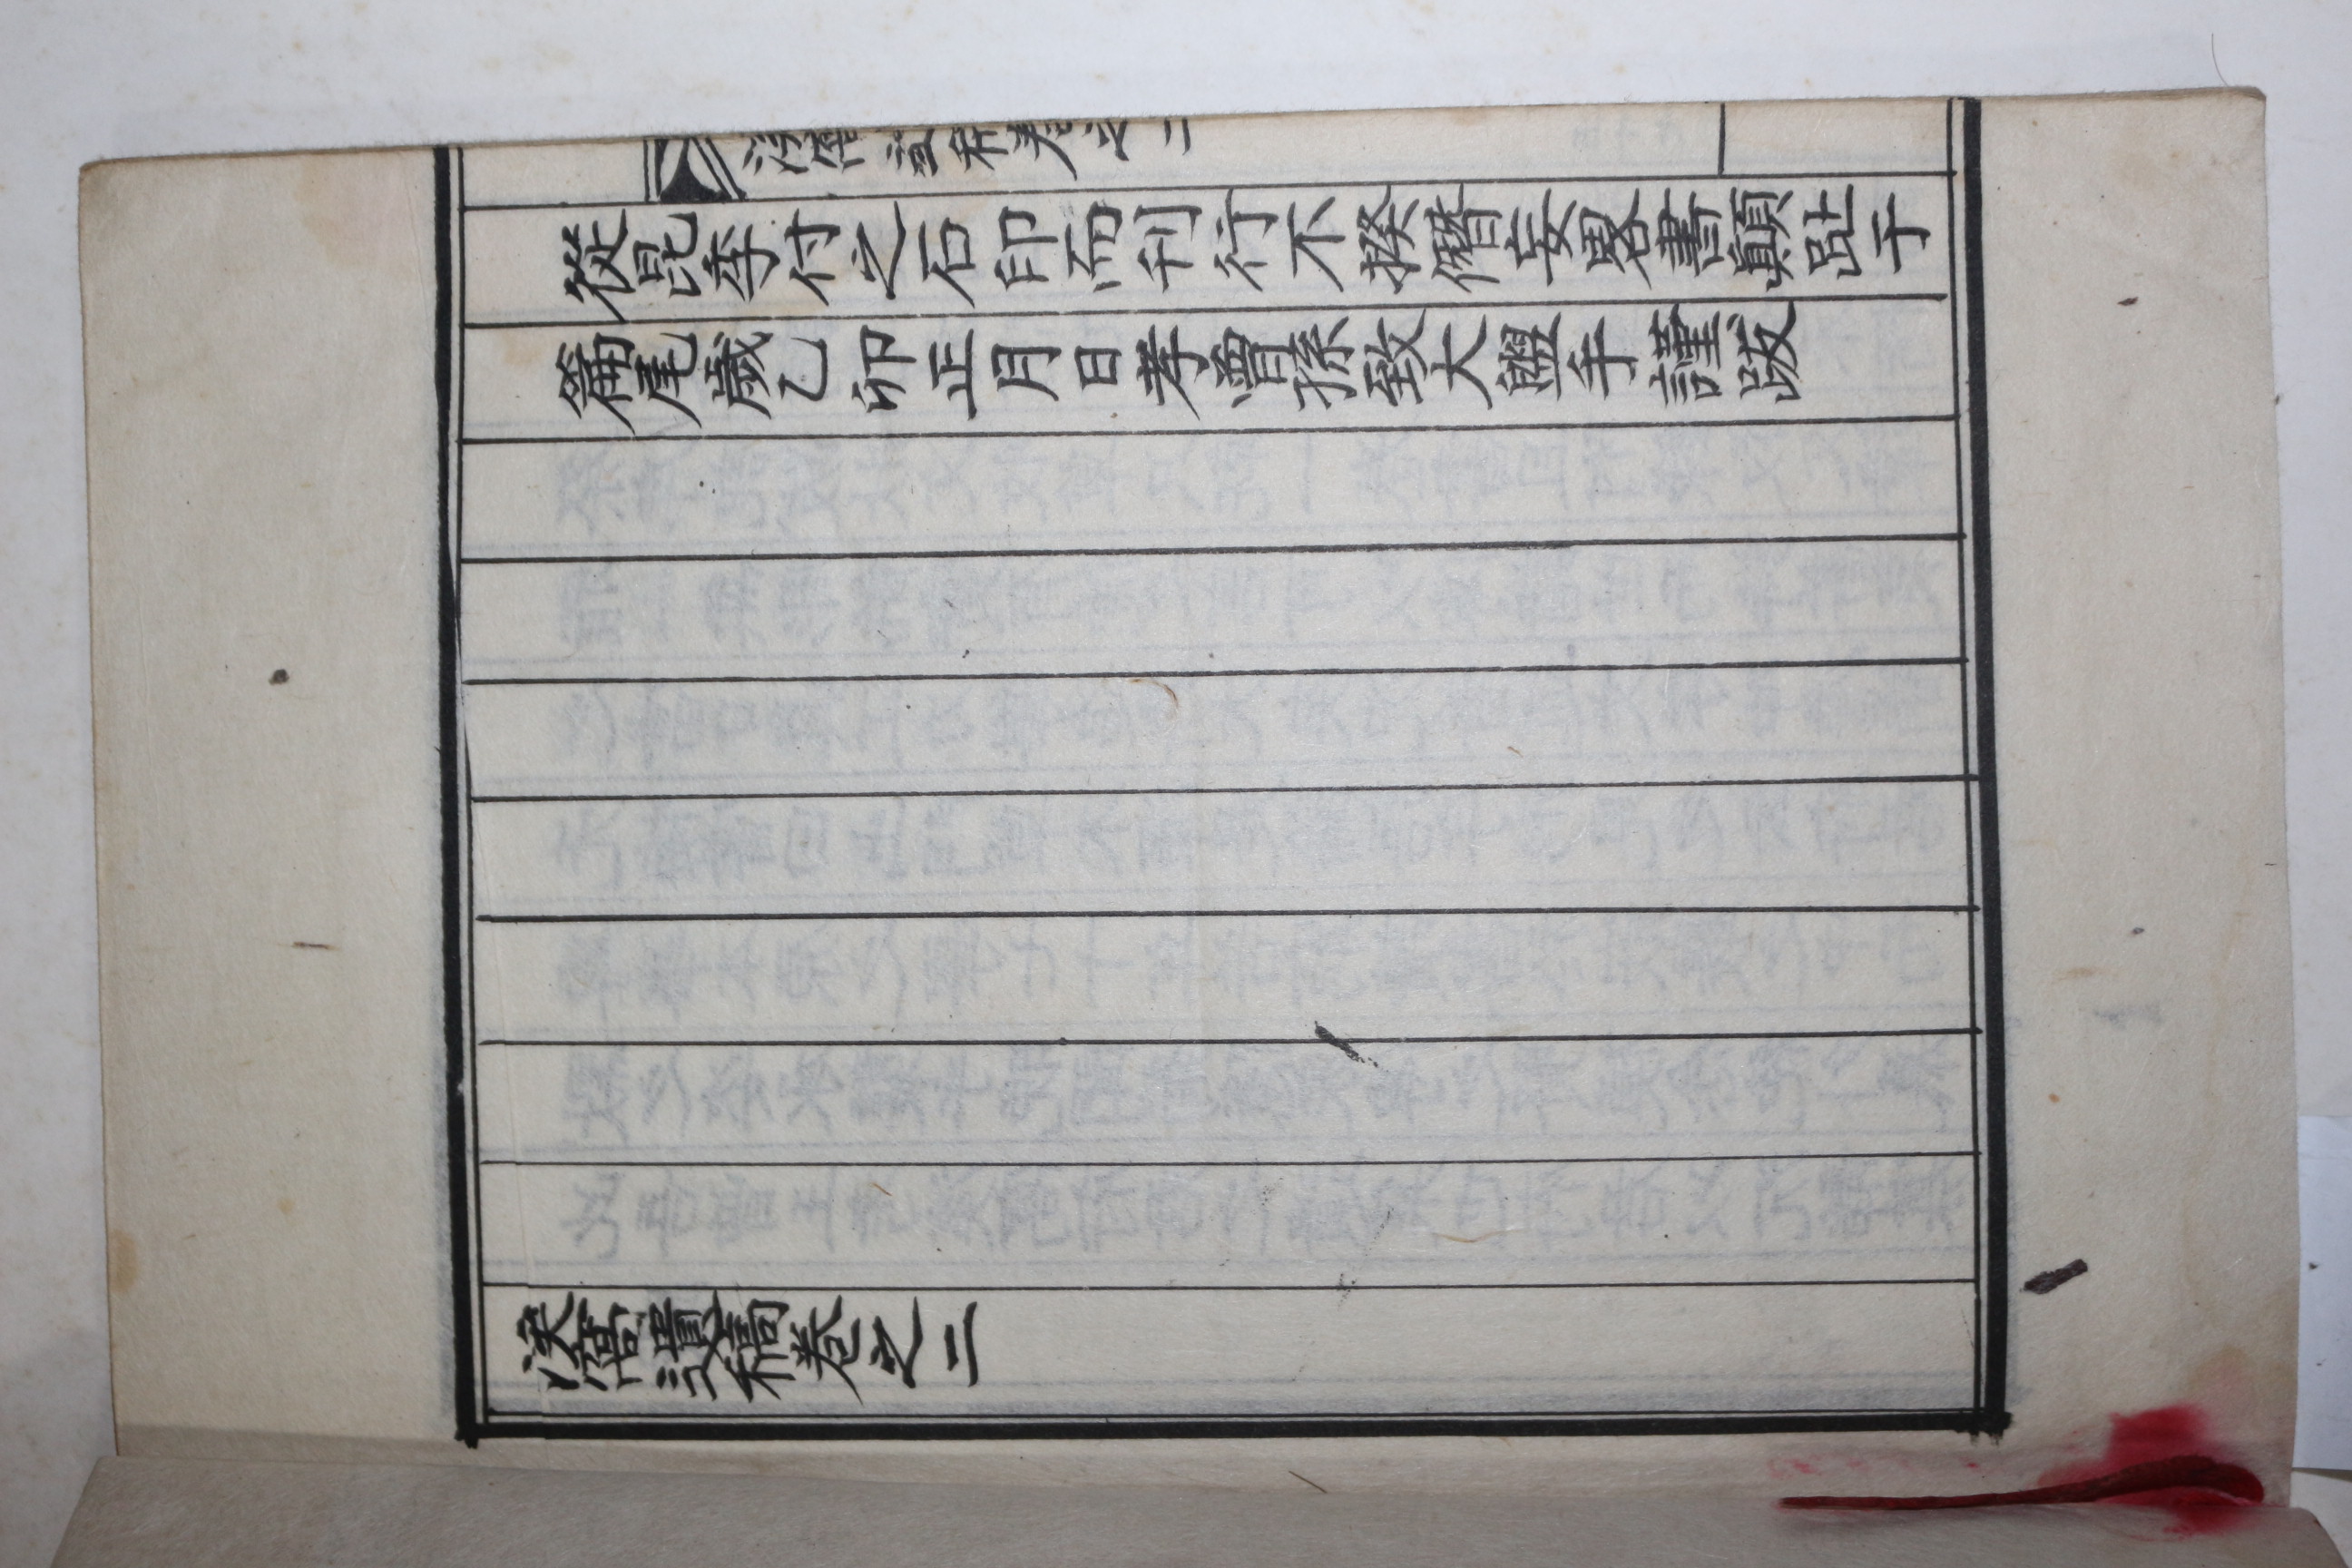 從昆季付之石印而刊行不揆僭妄畧書顚趾于
篇尾歲乙卯正月日孝曾孫致大盥手謹跋
涘窩遺稿卷之二